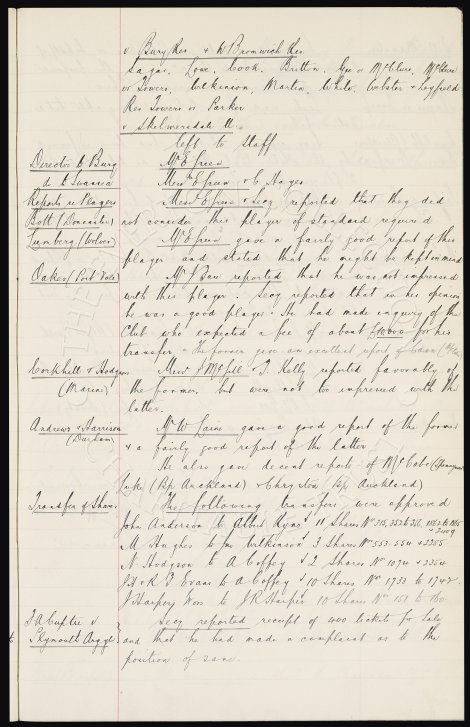 v Bury Res & W Bromwich Res
Sagar, Lowe, Cook, Britton, Gee or McClure, McClure
or Towers, Wilkinson, Martin, White, Webster & Leyfield
Res Towers or Parker
v Skelmersdale U.
left to staff
Director to Bury Mr E Green
do to Swansea Messrs E Green & C Hayes
Reports re Players Messrs E Green & Secy reported that they did
Bott (Doncaster) not consider this player of standard required
Lumberg (Wolves) Mr E Green gave a fairly good report of this
player and stated that he might be kept in mind
Oakes (Port Vale) Mr reported that he was not impressed
with this player. Secy reported that in his opinion
he was a good player. He had made inquiry of the
Club who expected a fee of about £10,000 for his
transfer. The former gave an excellent report of
Cockhill & Hodgson Messrs J & T. Kelly reported favorably of
(Marine) the former but were not so impressed with the
latter.
Andrews & Harrison Mr W gave a good report of the former
(Durham) & a fairly good report of the latter
He also gave decent reports of McCabe
(Bp Auckland) & Chrysdon (Bp Auckland)
Transfer of Shares The following transfers were approved
John Anderson to Albert 11 Shares No
M Hughes to Jno Wilkinson 3 Shares No 553.554 & 2255
N Hodgson to A Coffey 2 Shares No 1074 & 2354
J H & R J Evans to A Coffey 10 Shares No 1733 to 1742
J Harper to J R Harper 10 Shares No 151 to 160
J A Cuptie v Secy reported receipt of 400 tickets for sale
Plymouth Argyle and that he had made a complaint as to the
position of same.